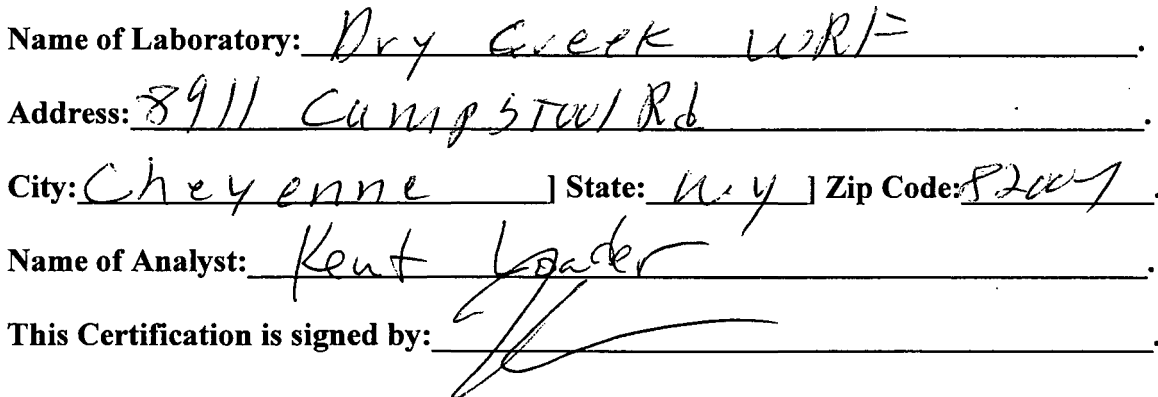 Name of Laboratory: Dry Creek WRF.
Address: 8911 Campstool Rd.
City: Cheyenne ] State: Wy ] Zip Code: 82007.
Name of Analyst: Kent Loader.
This Certification is signed by: .